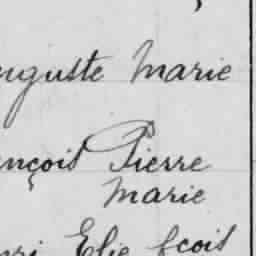 uguste Marie
nçois Pierre
Marie
nri Elie fcois